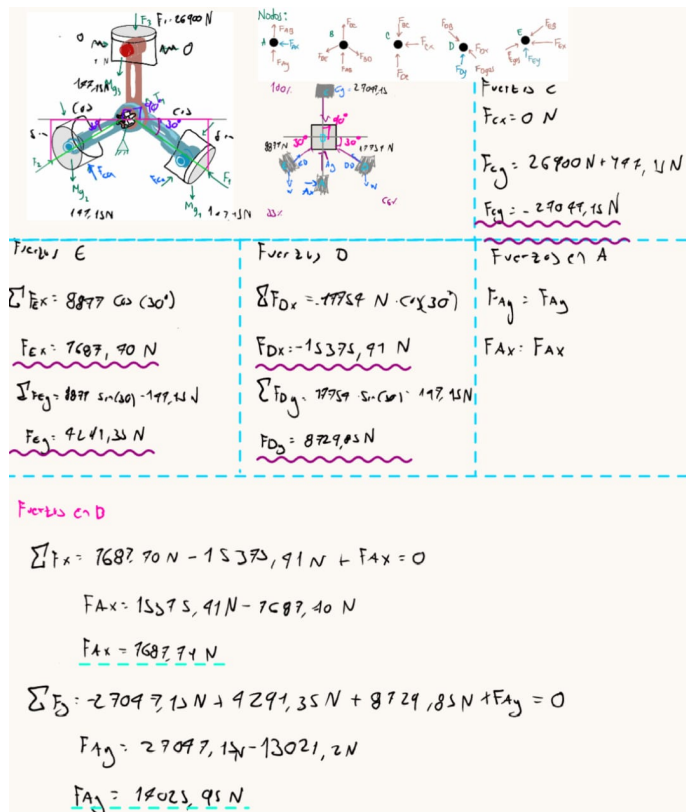 F₃ F₁ = 26900 N
Mg₃
147,15N
Cos
Cos
30°
F₂
Mg₂
147,15N
Mg₁
147,15N
Nodos:
A
FAB
FAx
FAy
B
FBC
FBE
FBD
FAB
C
FBC
FCx
D
FDB
FDx
FDy
E
FEB
FEx
FEy
100%
90°
30°
8877 N
17754 N
Ay
Ax
33%
66%
Fuerzas C
Fcx = 0 N
Fcy = 26900N + 147,15N
Fcy = -27047,15N
Fuerzas E
ΣFEx = 8877 Cos (30°)
FEx = 7687,70 N
ΣFEy = 8877 sin(30) - 147,15N
FEy = 4291,35 N
Fuerzas D
ΣFDx = -17754 N · Cos(30°)
FDx = -15375,41 N
ΣFDy = 17754 · Sin(30) - 147,15N
FDy = 8729,85N
Fuerzas en A
FAy = FAy
FAx = FAx
Fuerzas en D
ΣFx = 7687,70N - 15375,41N + FAx = 0
FAx = 15375,41N - 7687,70 N
FAx = 7687,71 N
ΣFy = -27047,15N + 4291,35N + 8729,85N + FAy = 0
FAy = 27047,15N - 13021,2N
FAy = 14025,95 N